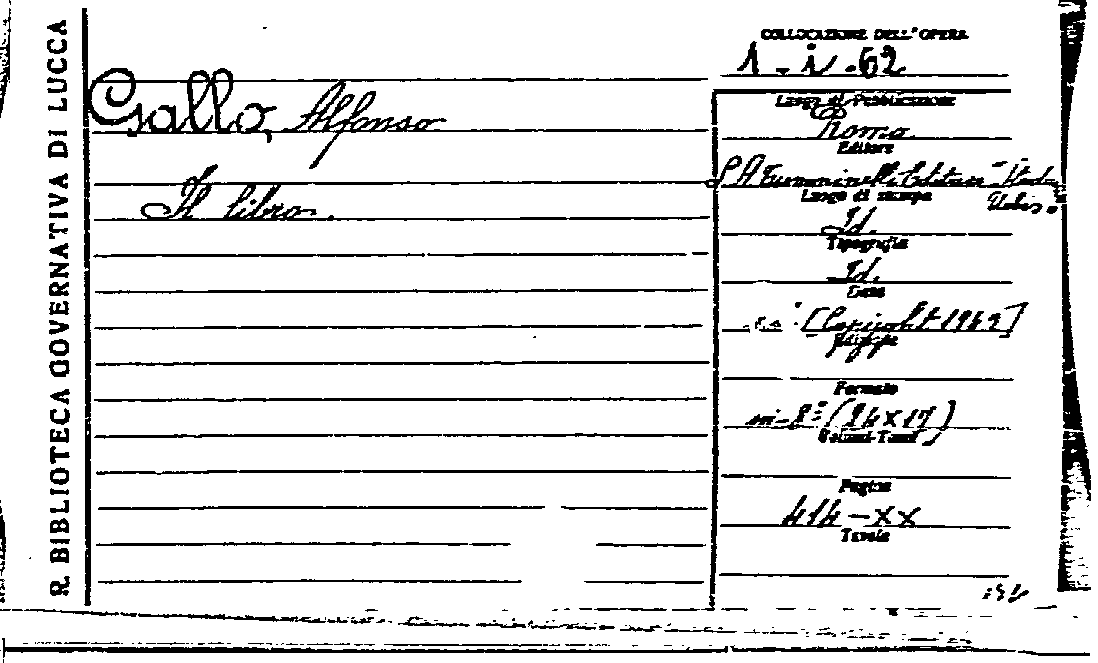 R. BIBLIOTECA GOVERNATIVA DI LUCCA
Gallo, Alfonso
Il libro.
COLLOCAZIONE DELL'OPERA
1 - i. - 62
Luogo di Pubblicazione
Roma
Editore
S A Tumminelli Editrice -
Luogo di stampa
Id.
Tipografia
Id.
Data
[Copiright 1942]
Formato
in-8° (24x17)
Volumi-Tomi
Pagine
414-XX
Tavole